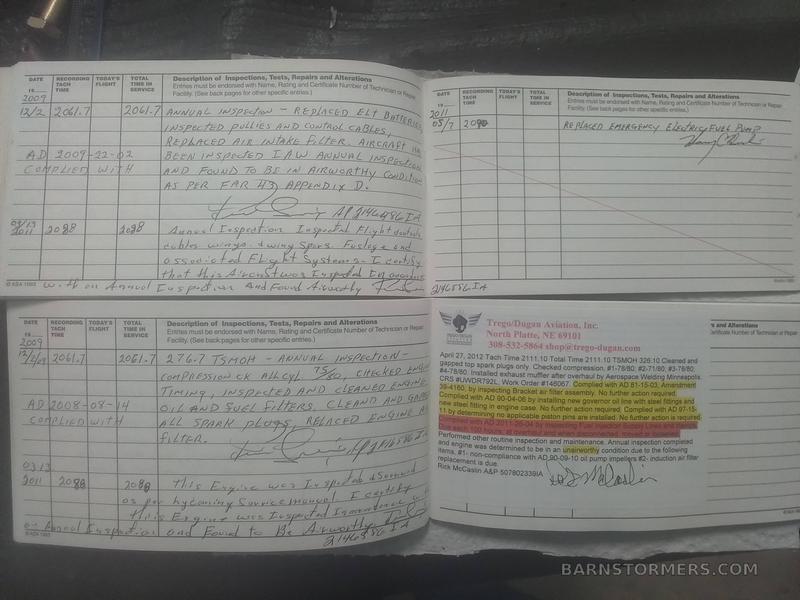 DATE
RECORDING TACH TIME
TODAY'S FLIGHT
TOTAL TIME IN SERVICE
Description of Inspections, Tests, Repairs and Alterations
Entries must be endorsed with Name, Rating and Certificate Number of Technician or Repair
Facility. (See back pages for other specific entries).
19
2009
12/2 2061.7 2061.7 ANNUAL INSPECTION - REPLACED ELT BATTERIES
INSPECTED PULLIES AND CONTROL CABLES,
REPLACED AIR INTAKE FILTER. AIRCRAFT HAS
AD 2009-22-02 BEEN INSPECTED IAW ANNUAL INSPECTION
COMPLIED WITH AND FOUND TO BE IN AIRWORTHY CONDITION
AS PER FAR 43, APPENDIX D.
AP2146856IA
2011 2088 2088 Annual Inspection Inspected Flight controls
cables wings + wing spars Fuslage and
associated Flight Systems - I certify
that this Aircraft was Inspected In
with an Annual Inspection And Found Airworthy
DATE
RECORDING TACH TIME
TODAY'S FLIGHT
TOTAL TIME IN SERVICE
Description of Inspections, Tests, Repairs and Alterations
Entries must be endorsed with Name, Rating and Certificate Number of Technician or Repair
Facility. (See back pages for other specific entries).
2011
05/7 REPLACED EMERGENCY ELECTRIC FUEL PUMP
DATE
RECORDING TACH TIME
TODAY'S FLIGHT
TOTAL TIME IN SERVICE
Description of Inspections, Tests, Repairs and Alterations
Entries must be endorsed with Name, Rating and Certificate Number of Technician or Repair
Facility. (See back pages for other specific entries).
19
2009
2061.7 2061.7 276.7 TSMOH - ANNUAL INSPECTION -
COMPRESSION CK ALL CYL 75/80, CHECKED ENGINE
TIMING, INSPECTED AND CLEANED ENGINE
AD 2008-08-14 OIL AND FUEL FILTERS, CLEAND AND GAPPED
COMPLIED WITH ALL SPARK PLUGS, RELACED ENGINE AIR
FILTER.
03.13
2011 2088 2088 This Engine was Inspected + Serviced
as per Lycoming Service manual. I certify
this Engine was Inspected In
an Annual Inspection and Found to Be Airworthy
Trego/Dugan Aviation, Inc.
North Platte, NE 69101
308-532-5864 shop@trego-dugan.com
April 27, 2012 Tach Time 2111.10 Total Time 2111.10 TSMOH 326.10 Cleaned and
gapped top spark plugs only. Checked compression. #1-78/80; #2-71/80; #3-76/80;
#4-78/80. Installed exhaust muffler after overhaul by Aerospace Welding Minneapolis
CRS #UWDR792L, Work Order #146067. Complied with AD 81-15-03, Amendment
39-4160, by inspecting Bracket air filter assembly. No further action required.
Complied with AD 90-04-06 by installing new governor oil line with steel fittings and
new steel fitting in engine case. No further action required. Complied with AD 97-15-
11 by determining no applicable piston pins are installed. No further action is required.
Complied with AD 2011-26-04 by inspecting Fuel Injector Supply Lines and
Due each 100 hours, at overhaul and when disconnected, moved or loosened.
Performed other routine inspection and maintenance. Annual inspection completed
and engine was determined to be in an unairworthy condition due to the following
items. #1- non-compliance with AD 90-09-10 oil pump impellers #2- induction air filter
replacement is due.
Rick McCaslin A&P 507802339IA
BARNSTORMERS.COM